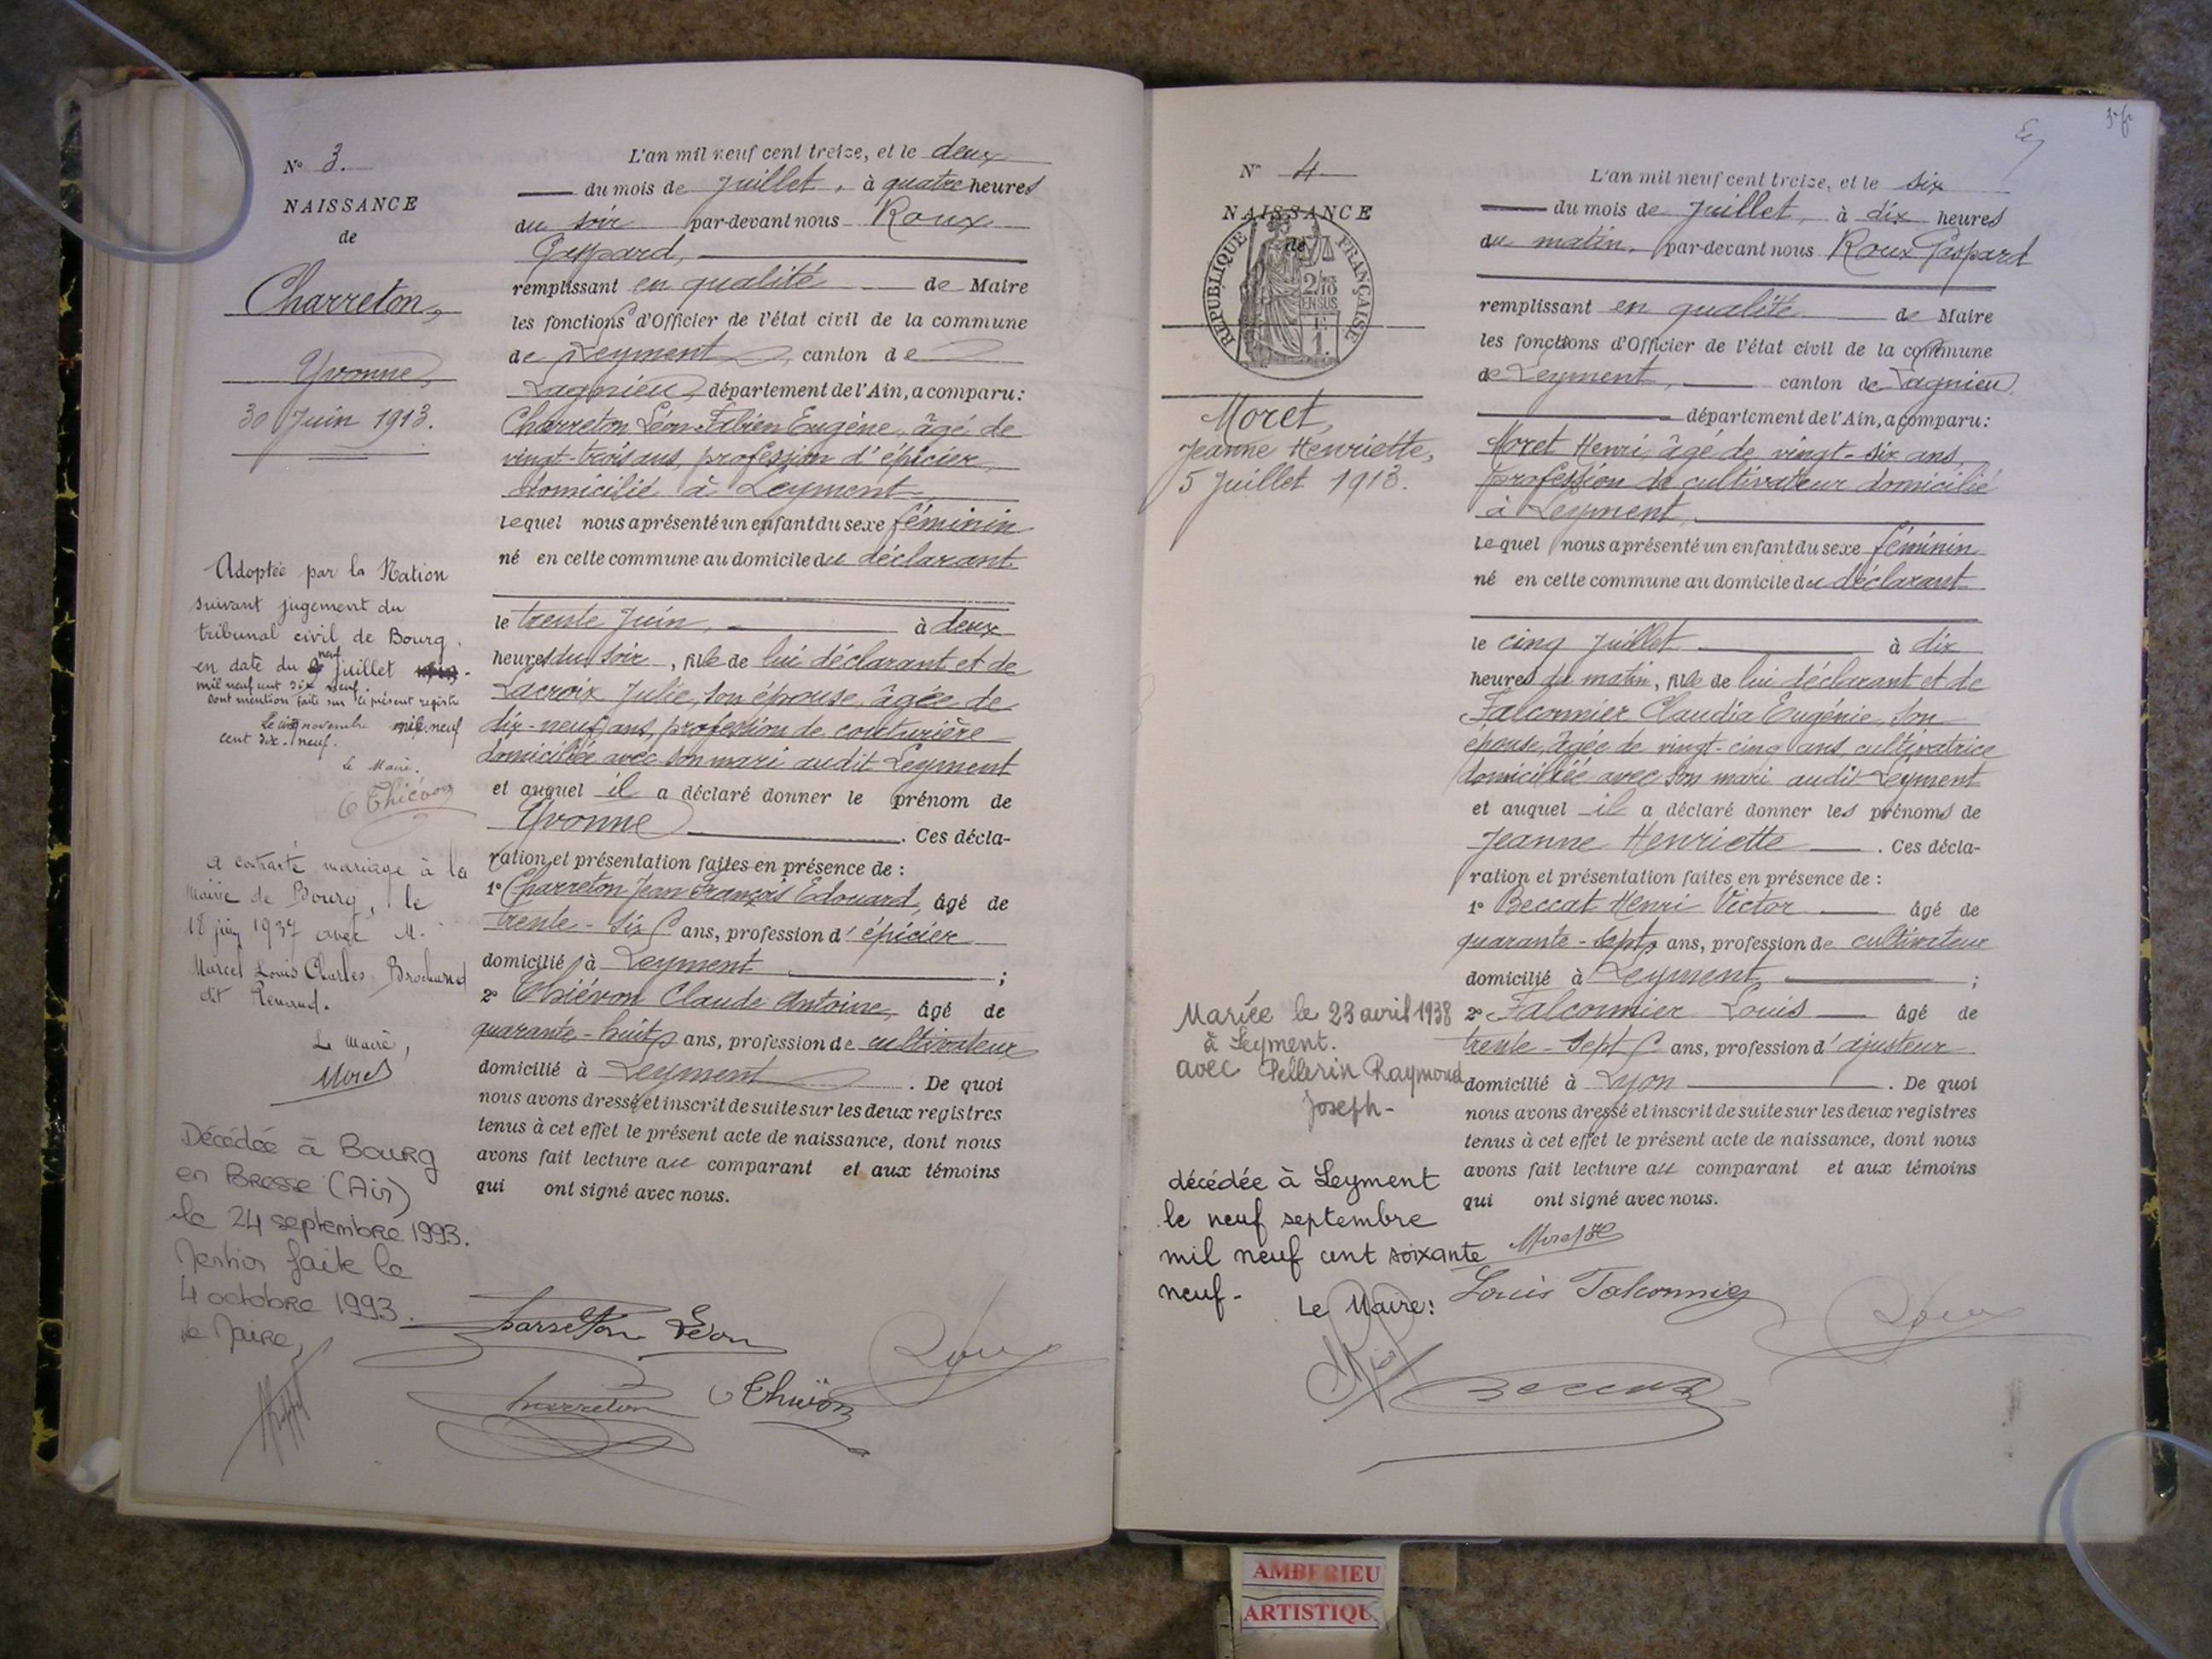 N° 3.
NAISSANCE
de
Charreton,
Yvonne,
30 Juin 1913.
Adoptée par la Nation
suivant jugement du
tribunal civil de Bourg
en date du neuf juillet
mil neuf cent dix neuf.
dont mention faite sur le présent registre
Le novembre mil neuf
cent dix-neuf.
Le Maire.
Thiévon
a contracté mariage à la
Mairie de Bourg, le
18 juin 1937 avec M.
Marcel Louis Charles Brochand
dit Renaud.
Le Maire,
Moret
Décédée à Bourg
en Bresse (Ain)
le 24 septembre 1993.
Mention faite le
4 octobre 1993.
Le Maire,
L'an mil neuf cent treize, et le deux
du mois de Juillet, à quatre heures
du soir par-devant nous Roux
Gaspard,
remplissant en qualité de Maire
les fonctions d'Officier de l'état civil de la commune
de Leyment, canton de
Lagnieu, département de l'Ain, a comparu:
Charreton Léon Fabien Eugène, âgé de
vingt-trois ans, profession d'épicier,
domicilié à Leyment
lequel nous a présenté un enfant du sexe féminin
né en cette commune au domicile du déclarant
le trente Juin, à deux
heures du soir, fille de lui déclarant et de
Lacroix Julie, son épouse, âgée de
dix-neuf ans, profession de couturière
domiciliée avec son mari audit Leyment
et auquel il a déclaré donner le prénom de
Yvonne. Ces décla-
ration et présentation faites en présence de :
1° Charreton Jean François Edouard, âgé de
trente-six ans, profession d'épicier
domicilié à Leyment ;
2° Thiévon Claude Antoine, âgé de
quarante-huit ans, profession de cultivateur
domicilié à Leyment. De quoi
nous avons dressé et inscrit de suite sur les deux registres
tenus à cet effet le présent acte de naissance, dont nous
avons fait lecture au comparant et aux témoins
qui ont signé avec nous.
Charreton Léon
Roux
Charreton Thiévon
N° 4
NAISSANCE
de
REPUBLIQUE FRANÇAISE
2/10
EN SUS
1F.
Moret,
Jeanne Henriette,
5 Juillet 1913.
Mariée le 23 avril 1938
à Leyment.
avec Pellerin Raymond
Joseph-
décédée à Leyment
le neuf septembre
mil neuf cent soixante
neuf-
Le Maire:
L'an mil neuf cent treize, et le six
du mois de Juillet, à dix heures
du matin, par-devant nous Roux Gaspard
remplissant en qualité de Maire
les fonctions d'Officier de l'état civil de la commune
de Leyment, canton de Lagnieu
département de l'Ain, a comparu:
Moret Henri, âgé de vingt-six ans,
profession de cultivateur domicilié
à Leyment,
lequel nous a présenté un enfant du sexe féminin
né en cette commune au domicile du déclarant
le cinq Juillet à dix
heures du matin, fille de lui déclarant et de
Falconnier Claudia Eugénie, son
épouse, âgée de vingt-cinq ans, cultivatrice
domiciliée avec son mari audit Leyment
et auquel il a déclaré donner les prénoms de
Jeanne Henriette. Ces décla-
ration et présentation faites en présence de :
1° Beccat Henri Victor âgé de
quarante-sept ans, profession de cultivateur
domicilié à Leyment ;
2° Falconnier Louis âgé de
trente-sept ans, profession d'ajusteur
domicilié à Lyon. De quoi
nous avons dressé et inscrit de suite sur les deux registres
tenus à cet effet le présent acte de naissance, dont nous
avons fait lecture au comparant et aux témoins
qui ont signé avec nous.
Moret
Louis Falconnier
Roux
Beccat
AMBERIEU
ARTISTIQU